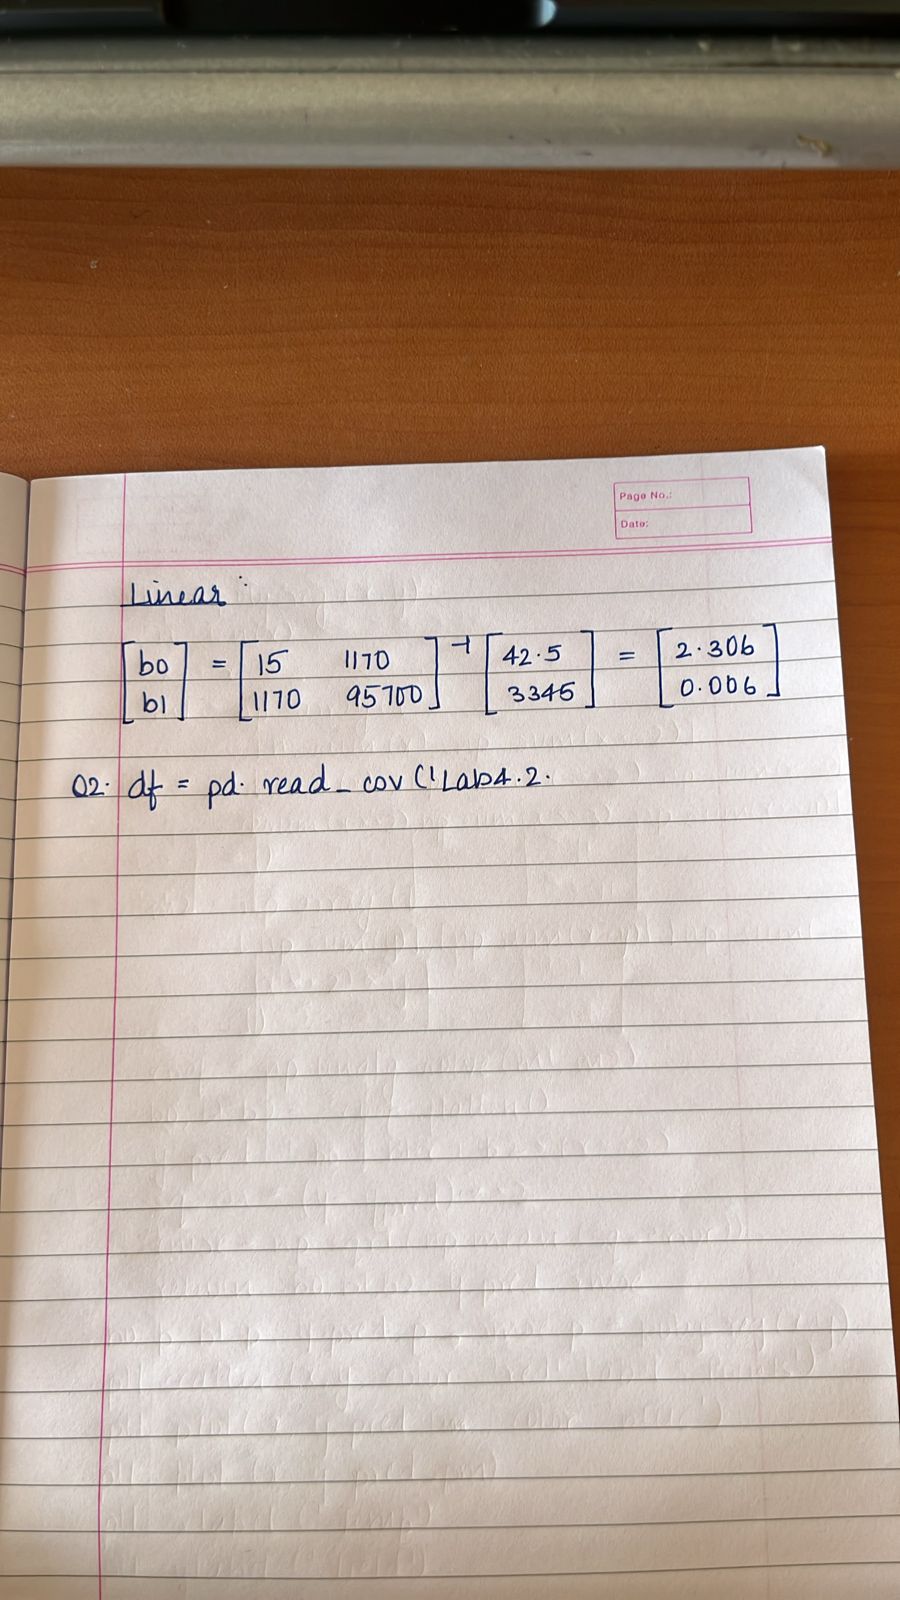 Page No.:
Date:
Linear :
[b0 b1] = [15 1170 1170 95700]⁻¹ [42.5 3345] = [2.306 0.006]
Q2. df = pd. read_cov ('Lab4.2.